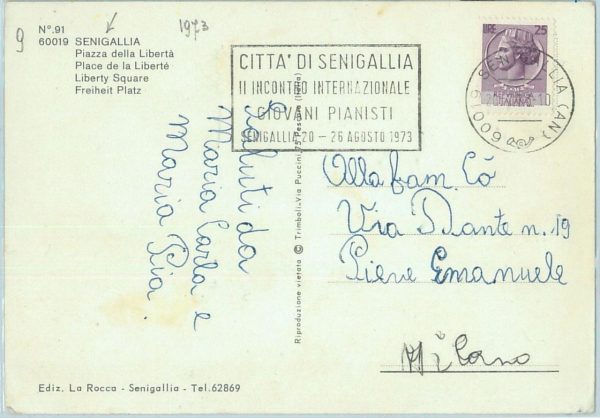 9
1973
N°.91
60019 SENIGALLIA
Piazza della Libertà
Place de la Liberté
Liberty Square
Freiheit Platz
CITTA' DI SENIGALLIA
II INCONTRO INTERNAZIONALE
GIOVANI PIANISTI
SENIGALLIA 20 - 26 AGOSTO 1973
25
60019 SENIGALLIA (AN)
10
Saluti da
Maria Carla e
Maria Pia.
Riproduzione vietata © Trimboli-Via Puccini,75 Pescara (Italia)
Alla fam. Cò
Via Dante n. 19
Pieve Emanuele
Milano
Ediz. La Rocca - Senigallia - Tel.62869